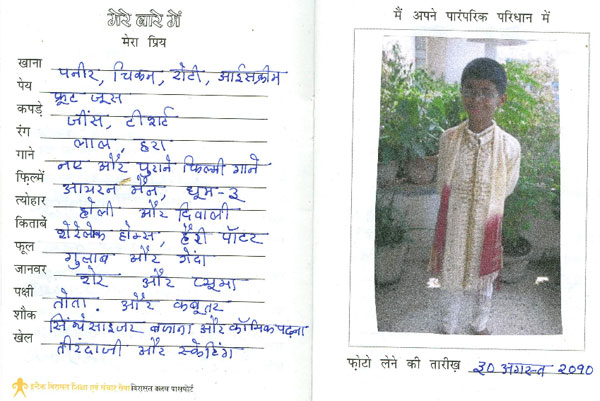 मेरे बारे में
मेरा प्रिय
खाना पनीर, चिकन, रोटी, आईसक्रीम
पेय फ्रूट जूस
कपड़े जींस, टीशर्ट
रंग लाल, हरा
गाने नए और पुराने फिल्मी गाने
फिल्में आयरन मैन, धूम-२
त्योहार होली और दिवाली
किताबें शेरलोक होम्स, हैरी पॉटर
फूल गुलाब और गेंदा
जानवर शेर और प्यूमा
पक्षी तोता. और कबूतर
शौक सिंथेसाइजर बजाना और कॉमिक पढ़ना
खेल तीरंदाजी और स्केटिंग
विरासत शिक्षा एवं संचार सेवा विरासत क्लब पासपोर्ट
मैं अपने पारंपरिक परिधान में
फ़ोटो लेने की तारीख़ ३० अगस्त २०१०